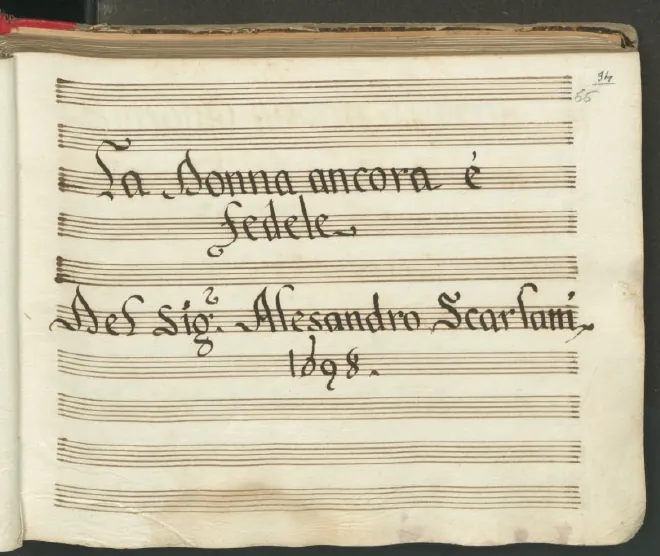 94
55
La Donna ancora é
fedele
Del Sig.re Alesandro Scarlatti
1698.